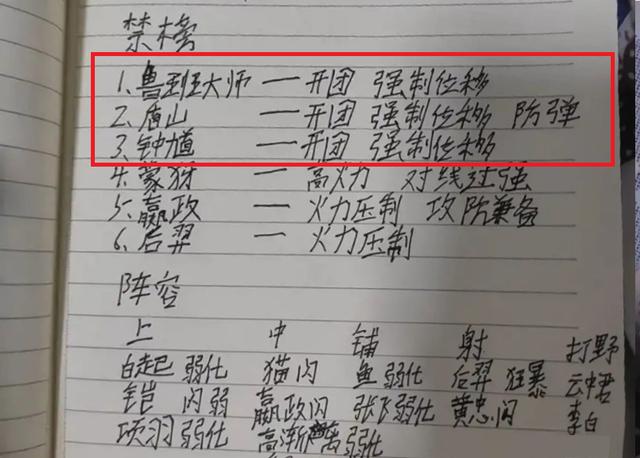 禁榜
1、鲁班大师 — 开团 强制位移
2、盾山 — 开团 强制位移 防弹
3、钟馗 — 开团 强制位移
4、蒙犽 — 高火力 对线过强
5、嬴政 — 火力压制 攻防兼备
6、后羿 — 火力压制
阵容
上 中 辅 射 打野
白起 弱化 猫闪 鱼 弱化 后羿 狂暴 云中君
铠 闪弱 嬴政闪 张飞弱化 黄忠闪 李白
项羽弱化 高渐离弱化